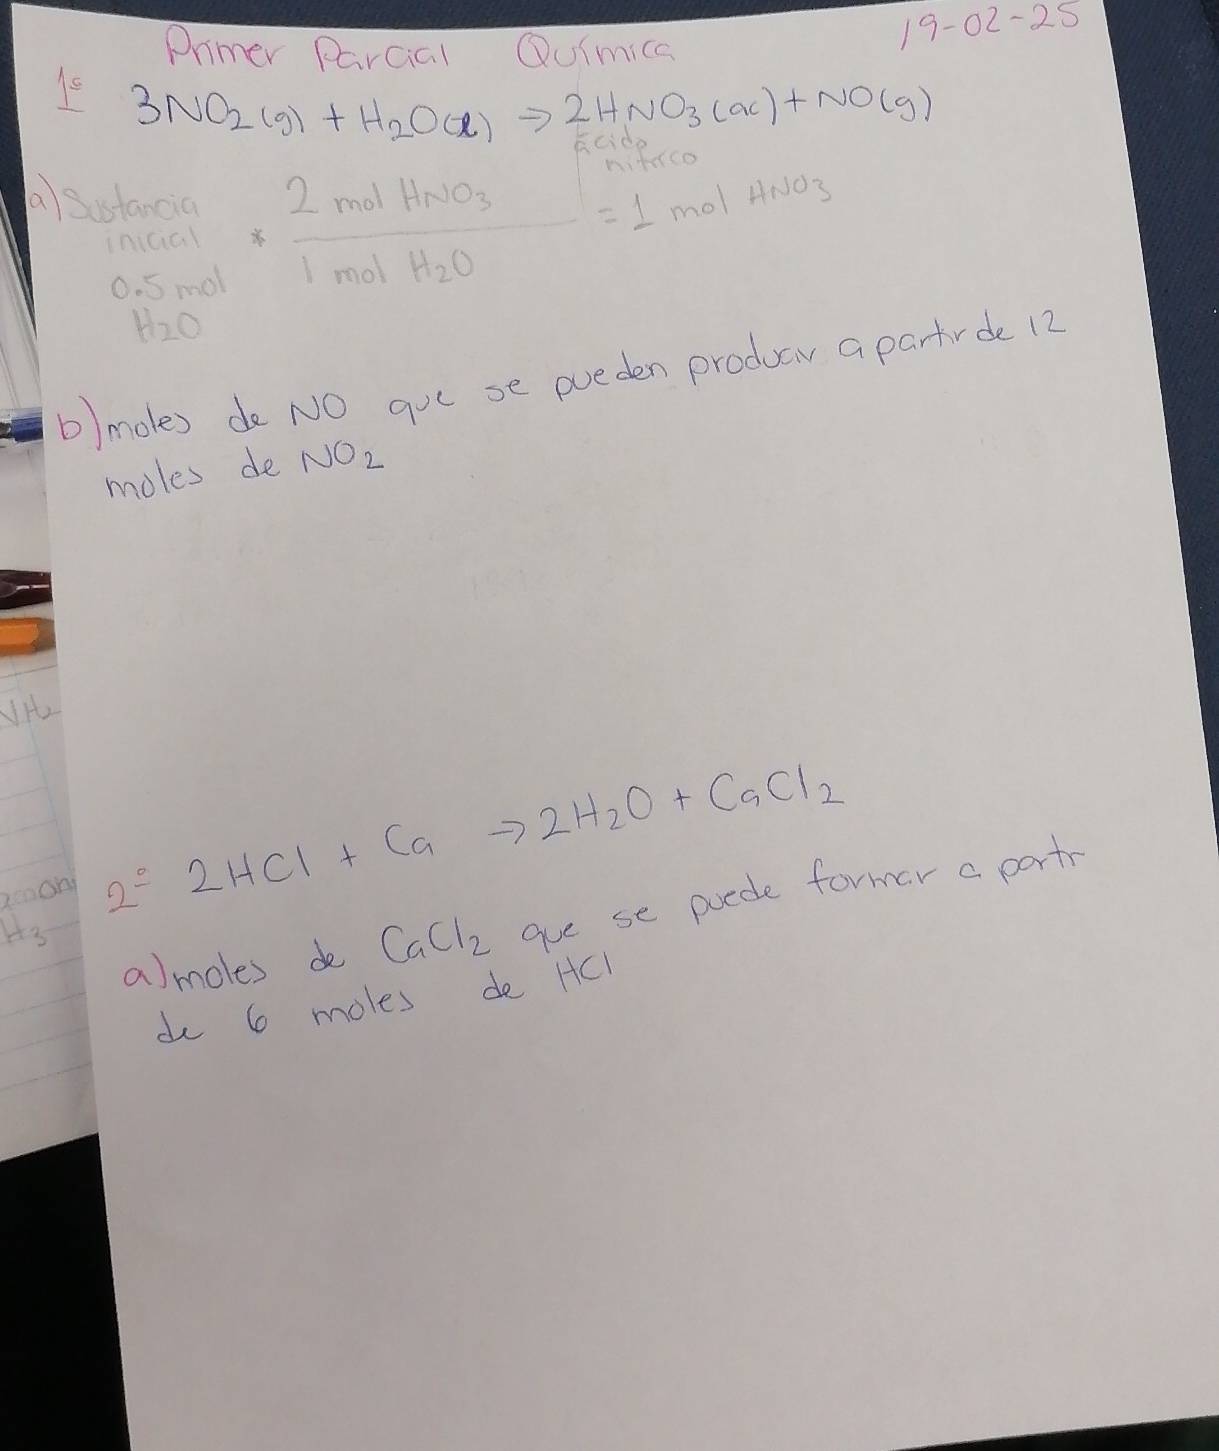 Primer Parcial Química 19-02-25
1º 3NO2(g) + H2O(l) → 2HNO3(ac) + NO(g)
ácido
nítrico
a) Sustancia
inicial * 2 mol HNO3 = 1 mol HNO3
0.5 mol 1 mol H2O
H2O
b) moles de NO que se pueden producir a partir de 12
moles de NO2
2º 2HCl + Ca → 2H2O + CaCl2
a) moles de CaCl2 que se puede formar a partir
de 6 moles de HCl
H3